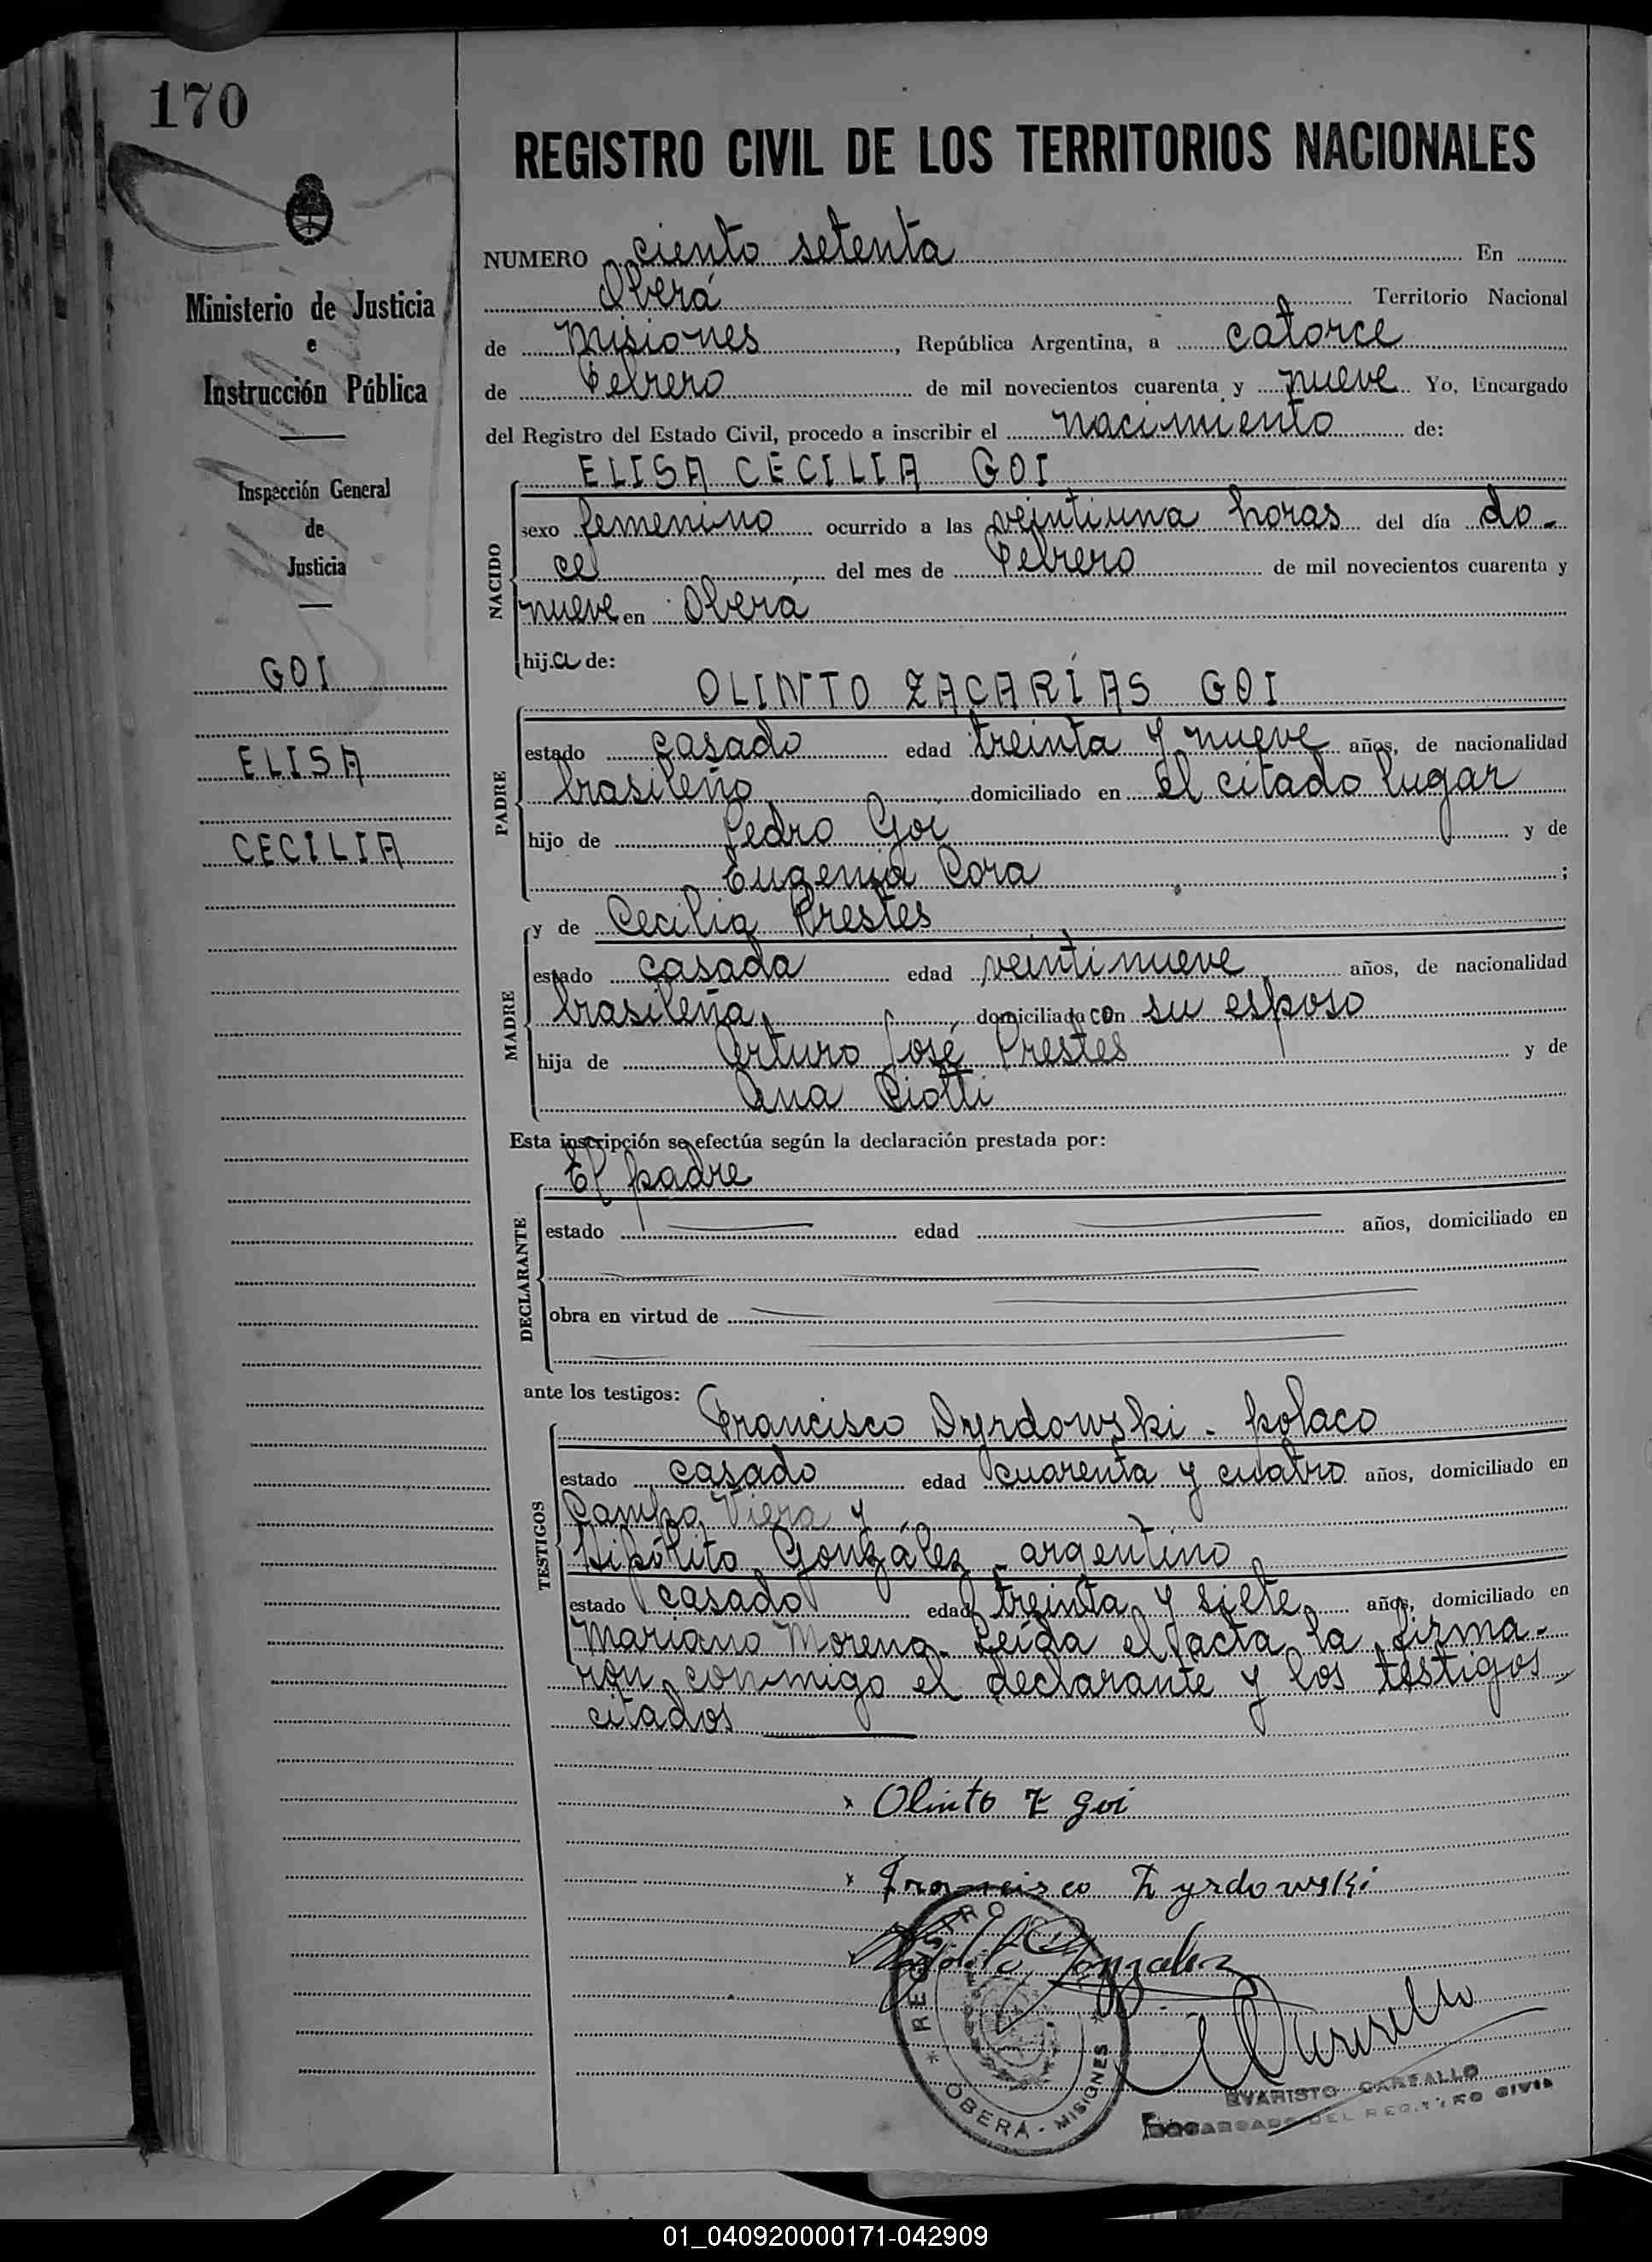 170
REGISTRO CIVIL DE LOS TERRITORIOS NACIONALES
Ministerio de Justicia
e
Instrucción Pública
Inspección General
de
Justicia
GOI
ELISA
CECILIA
NUMERO ciento setenta En
Oberá Territorio Nacional
de Misiones, República Argentina, a catorce
de Febrero de mil novecientos cuarenta y nueve Yo, Encargado
del Registro del Estado Civil, procedo a inscribir el nacimiento de:
ELISA CECILIA GOI
NACIDO
sexo femenino ocurrido a las veintiuna horas del día do-
ce del mes de Febrero de mil novecientos cuarenta y
nueve en Oberá
hija de:
OLINTO ZACARÍAS GOI
PADRE
estado casado edad treinta y nueve años, de nacionalidad
brasileño domiciliado en el citado lugar
hijo de Pedro Goi y de
Eugenia Cora ;
y de Cecilia Prestes
MADRE
estado casada edad veintinueve años, de nacionalidad
brasileña, domiciliada con su esposo
hija de Arturo José Prestes y de
Ana Ciotti
Esta inscripción se efectúa según la declaración prestada por:
El padre
DECLARANTE
estado edad años, domiciliado en
obra en virtud de
ante los testigos:
Francisco Dyrdowski - polaco
TESTIGOS
estado casado edad cuarenta y cuatro años, domiciliado en
Campo Viera y
Hipólito González - argentino
estado casado edad treinta y siete años, domiciliado en
Mariano Moreno. Leída el acta la firma-
ron conmigo el declarante y los testigos
citados
x Olinto Z Goi
x Francisco Dyrdowski
Hipólito Gonzalez
REGISTRO
OBERÁ - MISIONES
EVARISTO CARFALLO
ENCARGADO DEL REGISTRO CIVIL
01_040920000171-042909